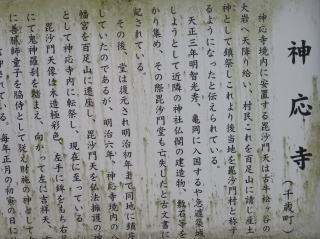 神応寺
（千歳町
神応寺境内に安置する毘沙門天は古く牛松々谷の
大岩へ天降り給い、村民これを百足山に請じ産土
神として鎮祭しこれより後当地を毘沙門村と称す
るようになったと伝えられている。
天正三年明智光秀、亀岡に入国するや急遽築城
しようとして近隣の神社仏閣の建造物、敷石等を
かり集め、その際毘沙門堂も亡失したと古文書に
記されている。
その後、堂は復元され明治初年まで同地に鎮座
していたのであるが、明治六年、神応寺境内の八
幡宮を百足山に遷座し、毘沙門天を仏法擁護の
として神応寺内に転祭し、現在に至っている。
毘沙門天像は木造極彩色、左手に鉾をもち右足
にて鬼神羅刹を踏まえ、向かって左に吉祥天、
に善膩師童子を脇侍として従え財施の神として
毎年正月の初寅の日に